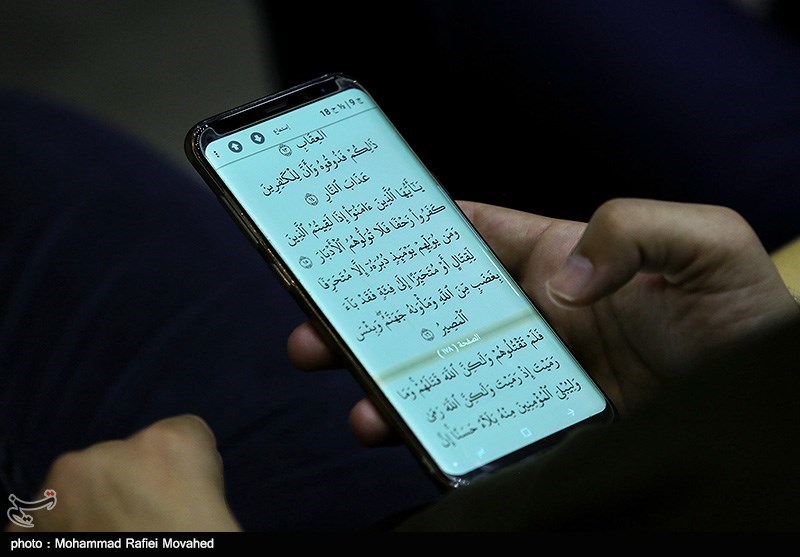 ج 9 | ½ ح 18
إستماع
ٱلْعِقَابِ ۝١٣
ذَٰلِكُمْ فَذُوقُوهُ وَأَنَّ لِلْكَٰفِرِينَ
عَذَابَ ٱلنَّارِ ۝١٤
يَٰٓأَيُّهَا ٱلَّذِينَ ءَامَنُوٓا۟ إِذَا لَقِيتُمُ ٱلَّذِينَ
كَفَرُوا۟ زَحْفًا فَلَا تُوَلُّوهُمُ ٱلْأَدْبَارَ ۝١٥
وَمَن يُوَلِّهِمْ يَوْمَئِذٍ دُبُرَهُۥٓ إِلَّا مُتَحَرِّفًا
لِّقِتَالٍ أَوْ مُتَحَيِّزًا إِلَىٰ فِئَةٍ فَقَدْ بَآءَ
بِغَضَبٍ مِّنَ ٱللَّهِ وَمَأْوَىٰهُ جَهَنَّمُ وَبِئْسَ
ٱلْمَصِيرُ ۝١٦
الصفحة (١٧٨)
فَلَمْ تَقْتُلُوهُمْ وَلَٰكِنَّ ٱللَّهَ قَتَلَهُمْ وَمَا
رَمَيْتَ إِذْ رَمَيْتَ وَلَٰكِنَّ ٱللَّهَ رَمَىٰ
وَلِيُبْلِىَ ٱلْمُؤْمِنِينَ مِنْهُ بَلَآءً حَسَنًا إِنَّ
تسنیم
photo : Mohammad Rafiei Movahed